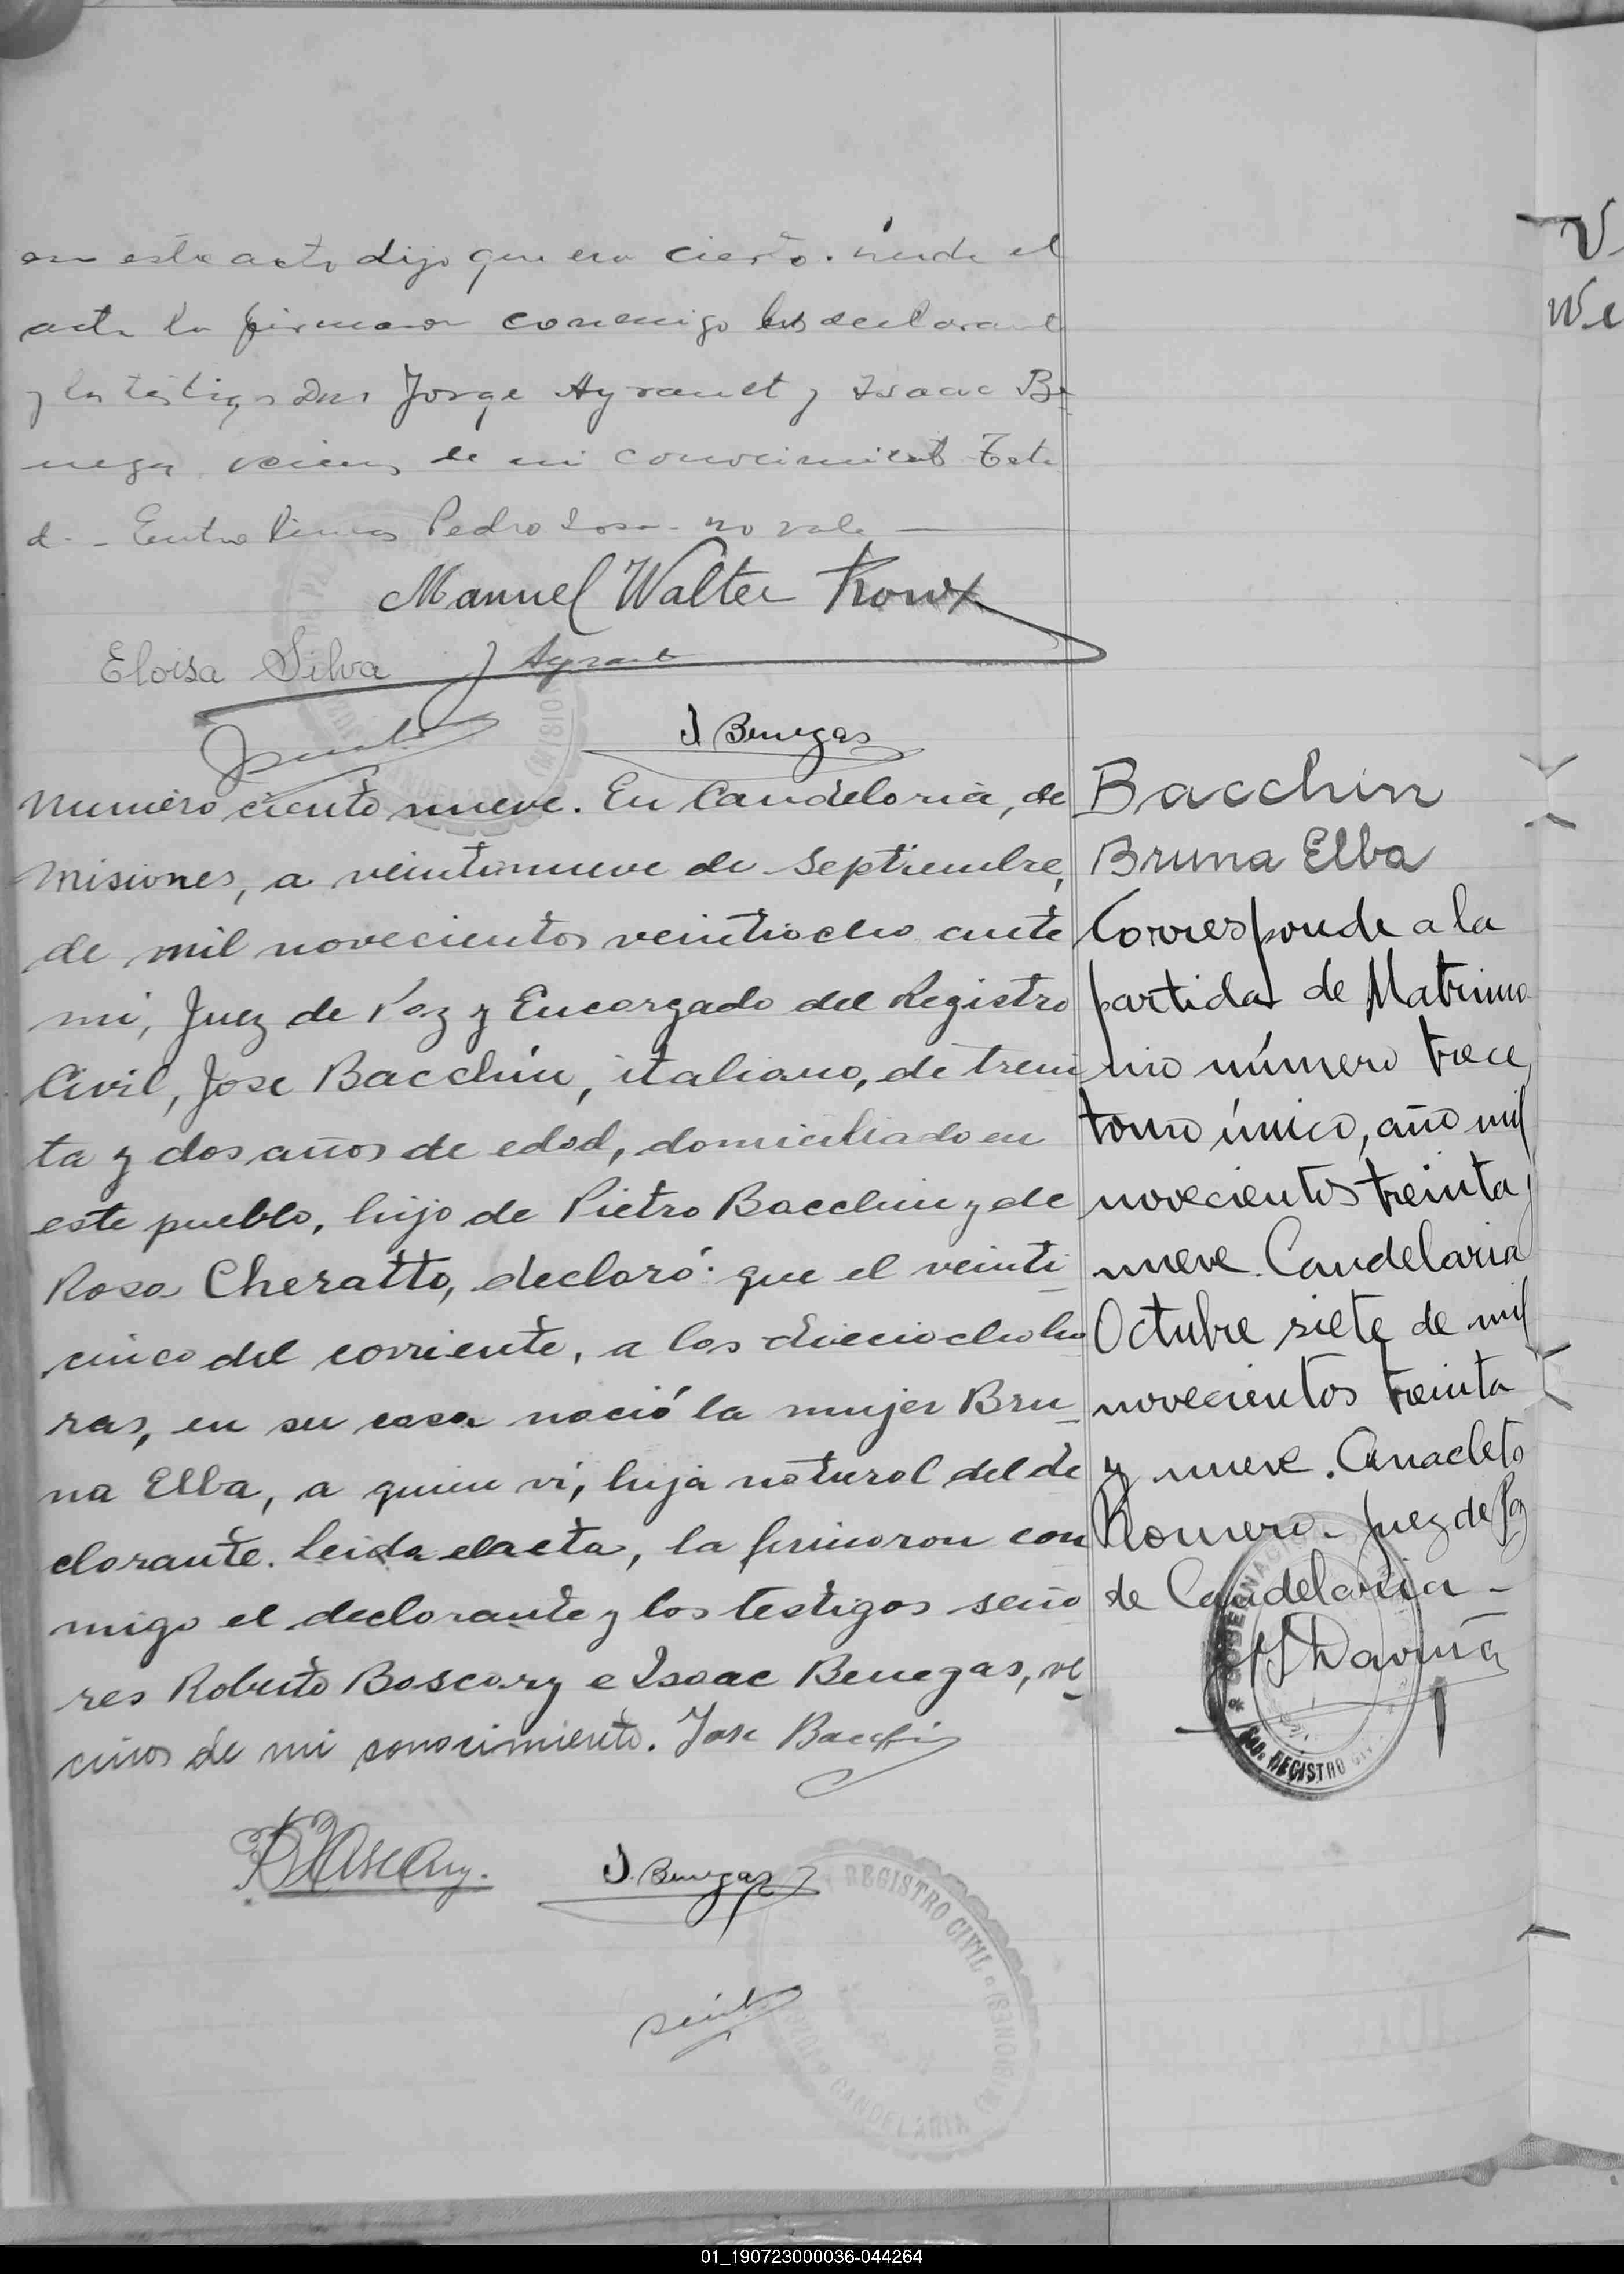 en este acto dijo que era cierto. Leida el
acta la firmaron conmigo los declarant
y los testigos Don Jorge Ayrault y Isaac Be
negas vecinos de mi conocimiento Testa
d. - Entre lineas Pedro Jose - no vale
Manuel Walter Roux
Eloisa Silva J Ayrault
J Benegas
Numero ciento nueve. En Candelaria, de
Misiones, a veintinueve de Septiembre,
de mil novecientos veintiocho ante
mi, Juez de Paz y Encargado del Registro
Civil, Jose Bacchin, italiano, de trein
ta y dos años de edad, domiciliado en
este pueblo, hijo de Pietro Bacchin y de
Rosa Cheratto, declaró: que el veinti
cinco del corriente, a las dieciocho ho
ras, en su casa nació la mujer Bru
na Elba, a quien vi, hija natural del de
clarante. Leida el acta, la firmaron con
migo el declarante y los testigos seño
res Roberto Boscary e Isaac Benegas, ve
cinos de mi conocimiento. Jose Bacchin
RBoscary.
J. Benegas
REGISTRO CIVIL (MISIONES)
CANDELARIA
Bacchin
Bruna Elba
Corresponde a la
partida de Matrimo
nio número trece,
tomo único, año mil
novecientos treinta y
nueve. Candelaria
Octubre siete de mil
novecientos treinta
y nueve. Anacleto
Romero - Juez de Paz
de Candelaria -
GOBERNACION
REGISTRO CIVIL
V
We
01_190723000036-044264